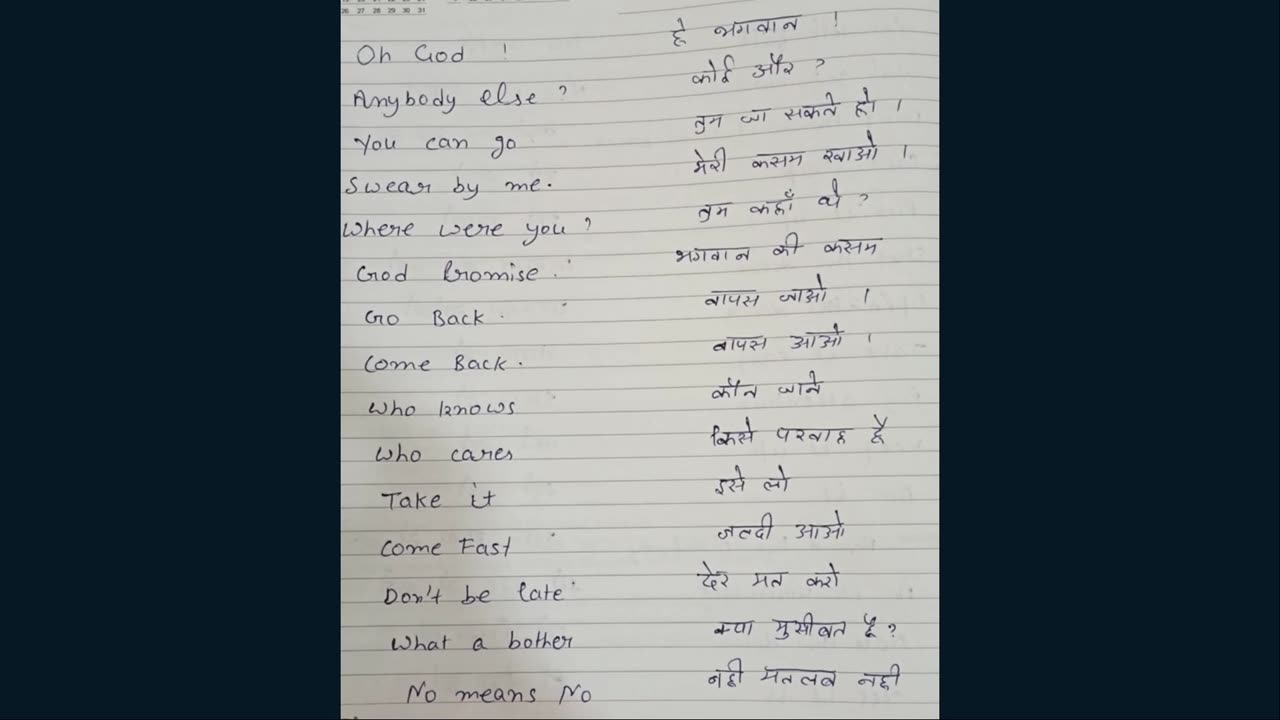 26 27 28 29 30 31
Oh God ! हे भगवान !
Anybody else ? कोई और ?
You can go तुम जा सकते हो ।
Swear by me. मेरी कसम खाओ ।
Where were you ? तुम कहाँ थे ?
God Promise. भगवान की कसम
Go Back. वापस जाओ ।
Come Back. वापस आओ ।
Who knows कौन जाने
Who cares किसे परवाह है
Take it इसे लो
Come Fast जल्दी आओ
Don't be late देर मत करो
What a bother क्या मुसीबत है ?
No means No नही मतलब नही